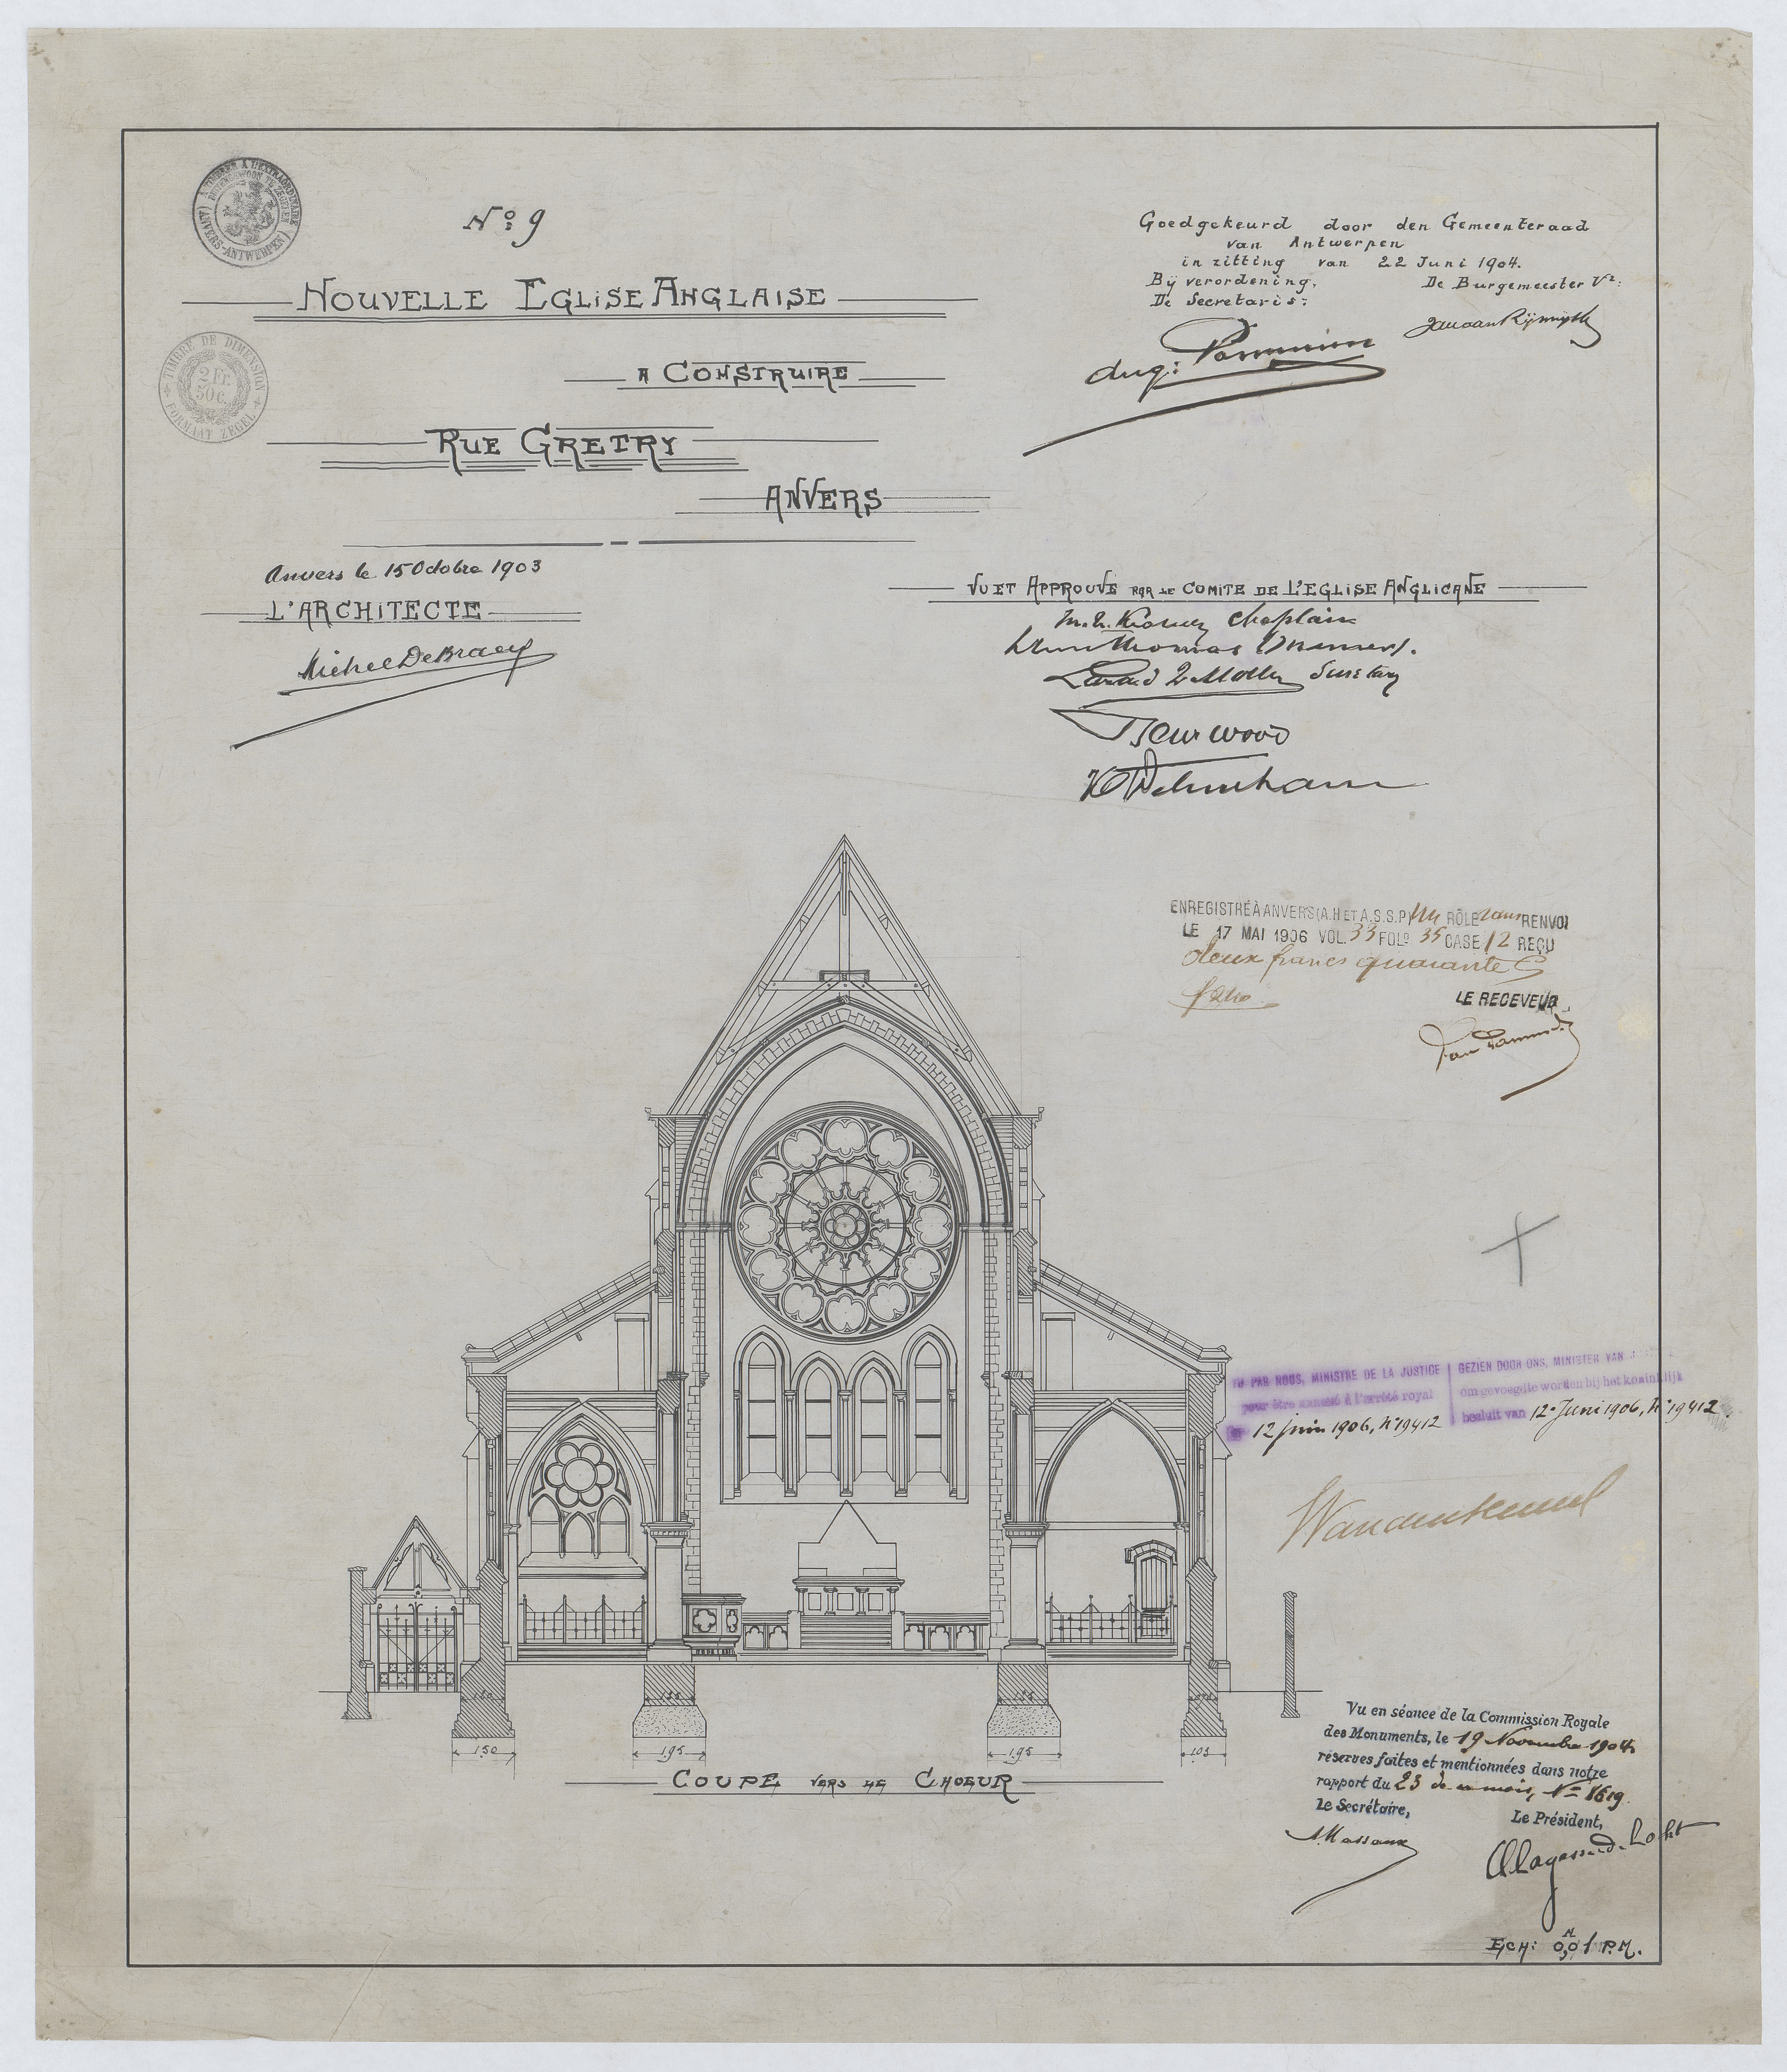 A TIMBRER A L'EXTRAORDINAIRE
BUITENGEWOON TE ZEGELEN
(ANVERS-ANTWERPEN)
Nº: 9
NOUVELLE EGLISE ANGLAISE
TIMBRE DE DIMENSION
2 Fr.
50 c.
FORMAAT ZEGEL
A CONSTRUIRE
RUE GRETRY
ANVERS
Anvers le 15 Octobre 1903
L'ARCHITECTE
Michel DeBraey
Goedgekeurd door den Gemeenteraad
van Antwerpen
in zitting van 22 Juni 1904.
Bij verordening,
De Secretaris:
De Burgemeester Vr:
Jan van Rijswijck
VU ET APPROUVE PAR LE COMITE DE L'EGLISE ANGLICANE
Chaplain
Thomas
Secretary
ENREGISTRÉ À ANVERS (A.H ET A.S.S.P) un RÔLE sans RENVOI
LE 17 MAI 1906 VOL. 33 FOLº 35 CASE 12 REÇU
deux francs quarante C
LE RECEVEUR
VU PAR NOUS, MINISTRE DE LA JUSTICE
pour être annexé à l'arrêté royal
12 juin 1906, Nº 19412
GEZIEN DOOR ONS, MINISTER VAN
om gevoegd te worden bij het koninklijk
besluit van 12 Juni 1906, Nº 19412.
1.50
1.95
1.95
1.03
COUPE VERS LE CHOEUR
Vu en séance de la Commission Royale
des Monuments, le 19 Novembre 1904
réserves faites et mentionnées dans notre
rapport du 23 de ce mois, Nº 1619.
Le Secrétaire,
A. Massaux
Le Président,
Lagasse de Locht
ECH: 0,01 M P.M.